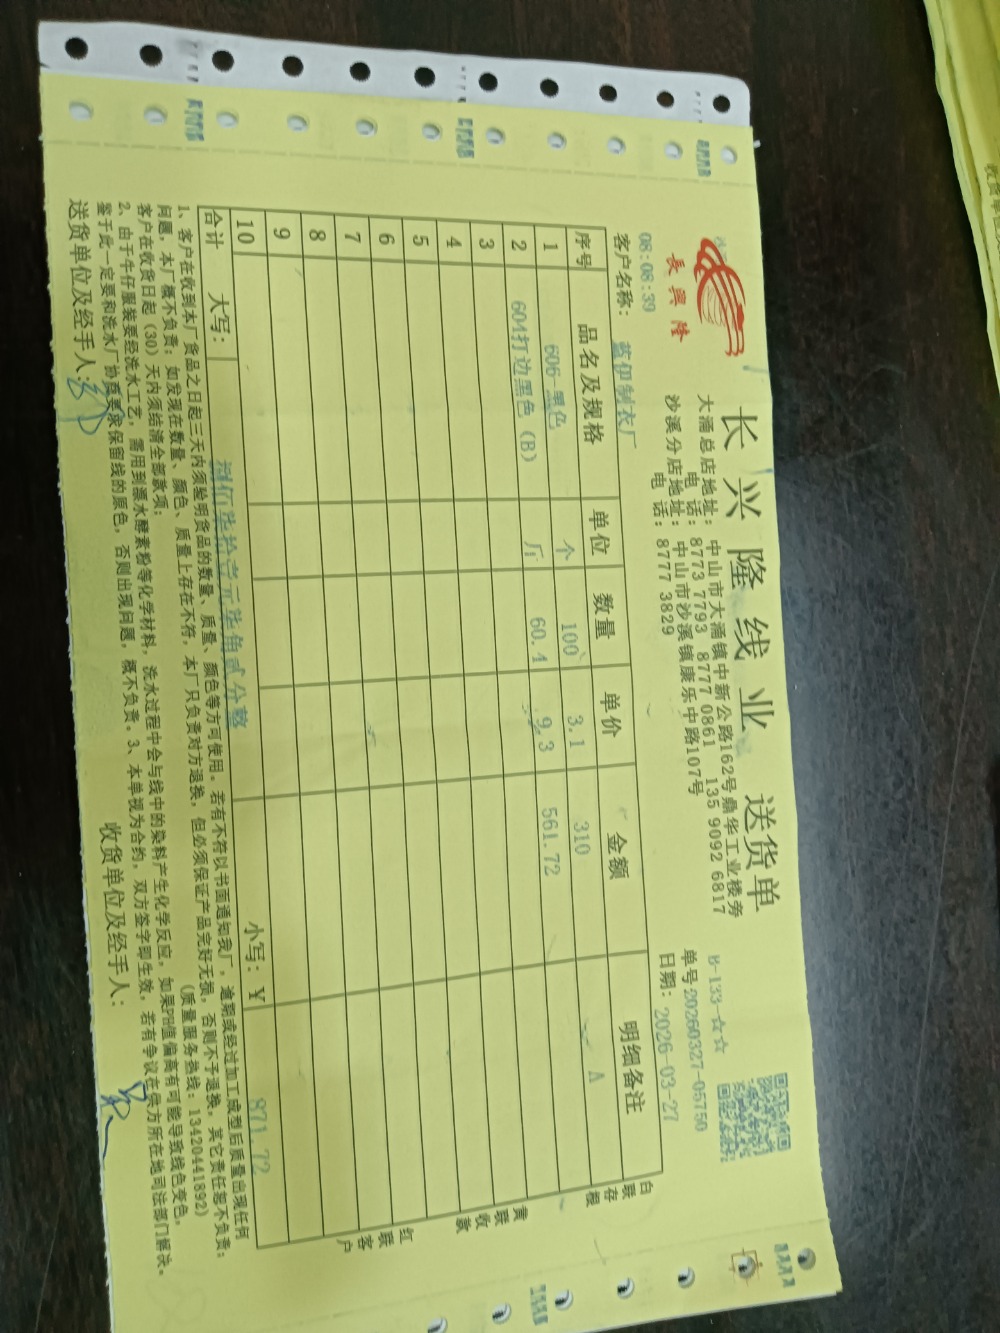 长兴隆线业 送货单
長興隆
大涌总店地址：中山市大涌镇中新公路162号鼎华工业楼旁
电话：8773 7793 8777 0861 135 9092 6817
沙溪分店地址：中山市沙溪镇康乐中路107号
电话：8777 3829
B-133-☆☆
单号20260327-05750
日期：2026-03-27
08:08:39
客户名称：蓝伊制衣厂
序号 品名及规格 单位 数量 单价 金额 明细备注
1 606-黑色 个 100 3.1 310 A
2 604打边黑色（B） 斤 60.4 9.3 561.72
3
4
5
6
7
8
9
10
合计 大写：捌佰柒拾壹元柒角贰分整 小写：￥ 871.72
白联存根
黄联收款
红联客户
1、客户在收到本厂货品之日起三天内须验明货品的数量、质量、颜色等方可使用。若有不符以书面通知我厂，逾期或经过加工成型后质量出现任何
问题，本厂概不负责；如发现在数量、颜色、质量上存在不符，本厂只负责对方退换，但必须保证产品完好无损，否则不予退换，其它责任恕不负责；
客户在收货日起（30）天内须结清全部款项； （质量服务热线：13420441892）
2、由于牛仔服装要经洗水工艺，需用到漂水酵素粉等化学材料，洗水过程中会与线中的染料产生化学反应，如果PH值偏高有可能导致线色变色。
鉴于此一定要和洗水厂协商要求保留线的原色，否则出现问题，概不负责。3、本单视为合约，双方签字即生效，若有争议在供方所在地司法部门解决。
送货单位及经手人：
收货单位及经手人：